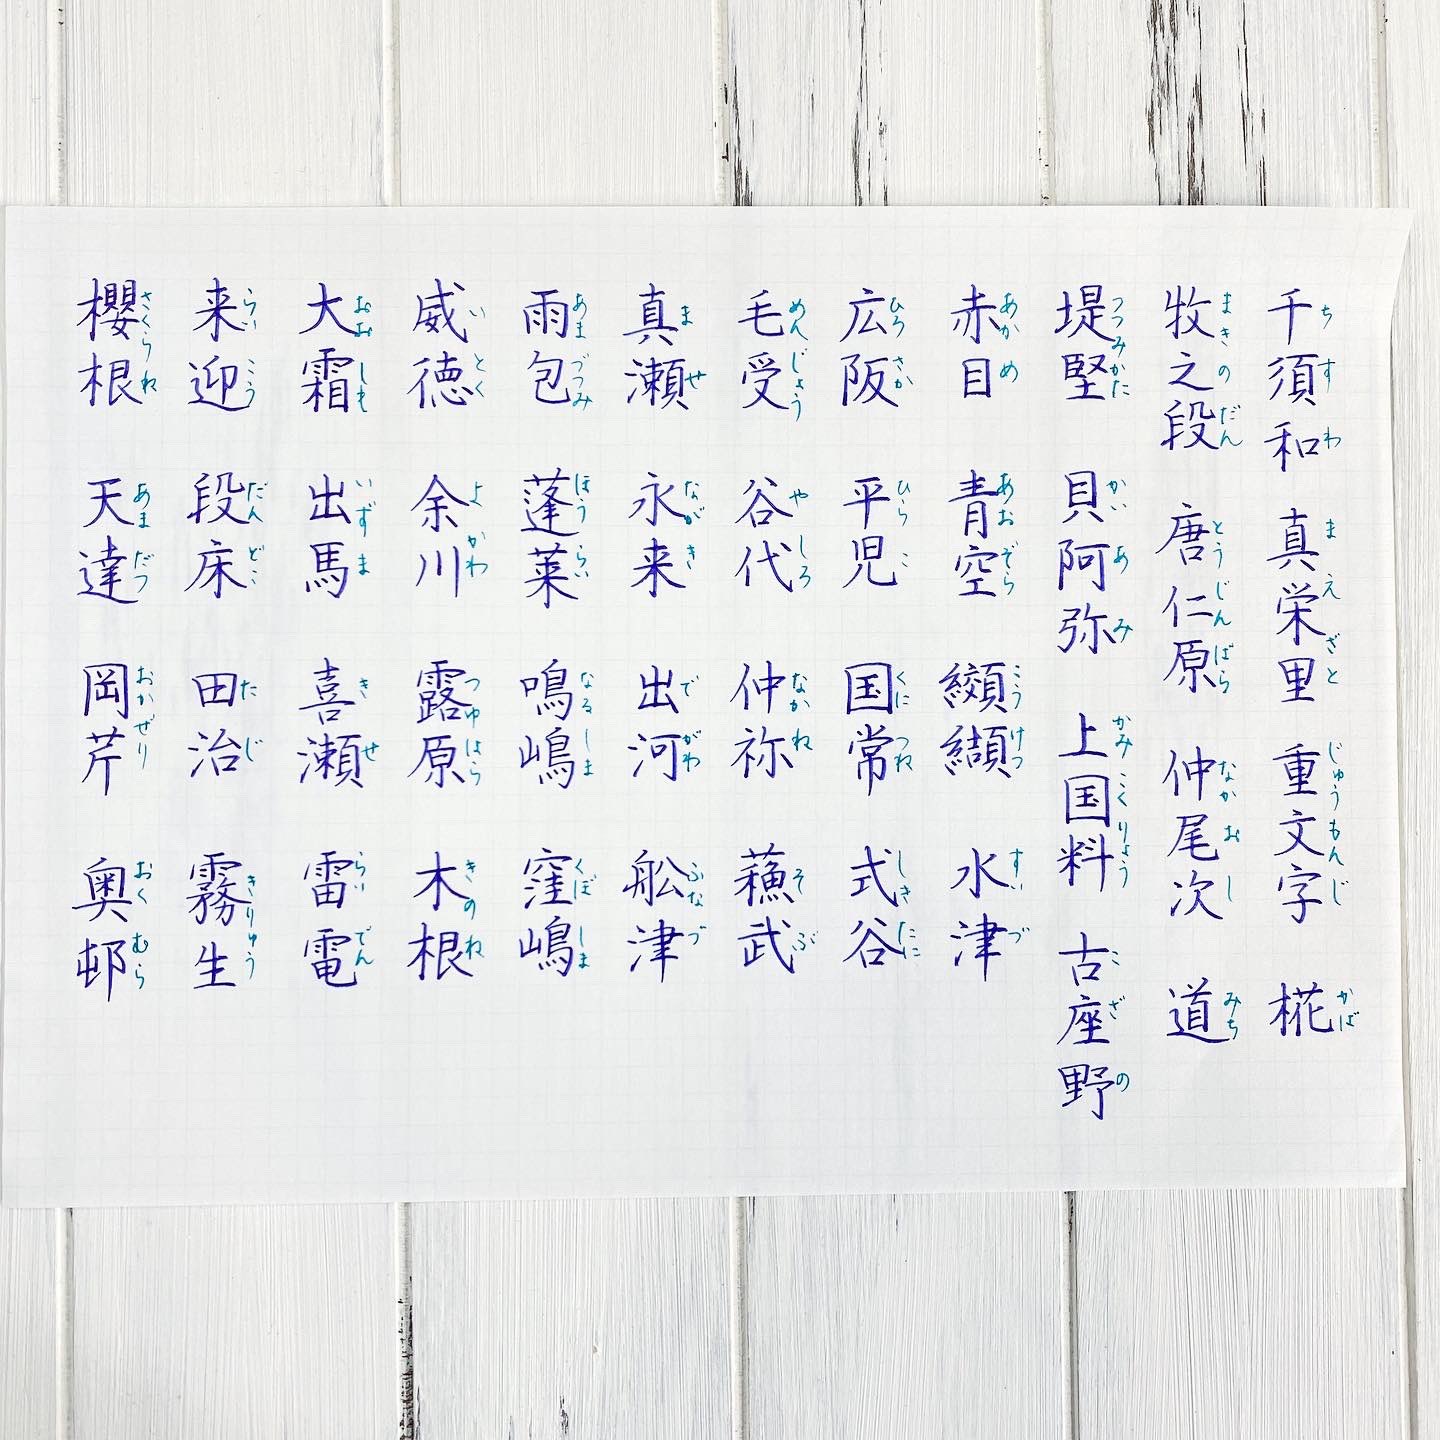 千須和 真栄里 重文字 椛
ちすわ まえざと じゅうもんじ かば
牧之段 唐仁原 仲尾次 道
まきのだん とうじんばら なかおし みち
堤堅 貝阿弥 上国料 古座野
つつみかた かいあみ かみこくりょう こざの
赤目 青空 纐纈 水津
あかめ あおぞら こうけつ すいづ
広阪 平児 国常 式谷
ひろさか ひらこ くにつね しきたに
毛受 谷代 仲祢 蘓武
めんじょう やしろ なかね そぶ
真瀬 永来 出河 舩津
ませ ながき でがわ ふなづ
雨包 蓬莱 鳴嶋 窪嶋
あまづつみ ほうらい なるしま くぼしま
威徳 余川 露原 木根
いとく よかわ つゆはら きのね
大霜 出馬 喜瀬 雷電
おおしも いずま きせ らいでん
来迎 段床 田治 霧生
らいこう だんどこ たじ きりゅう
櫻根 天達 岡芹 奥邨
さくらね あまだつ おかぜり おくむら